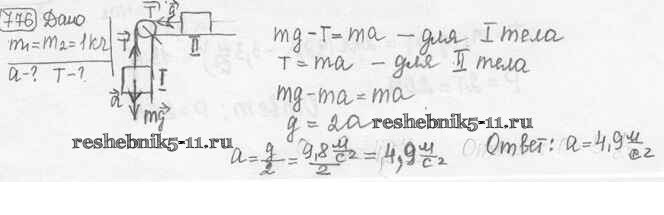 776 Дано
m₁=m₂=1кг
a-? T-?
T a
II
T
I
a
mg
mg-T=ma – для I тела
T=ma – для II тела
mg-ma=ma
g=2a
reshebnik5-11.ru
reshebnik5-11.ru
a=g/2=9,8 м/с²/2=4,9 м/с²
Ответ: a=4,9 м/с²